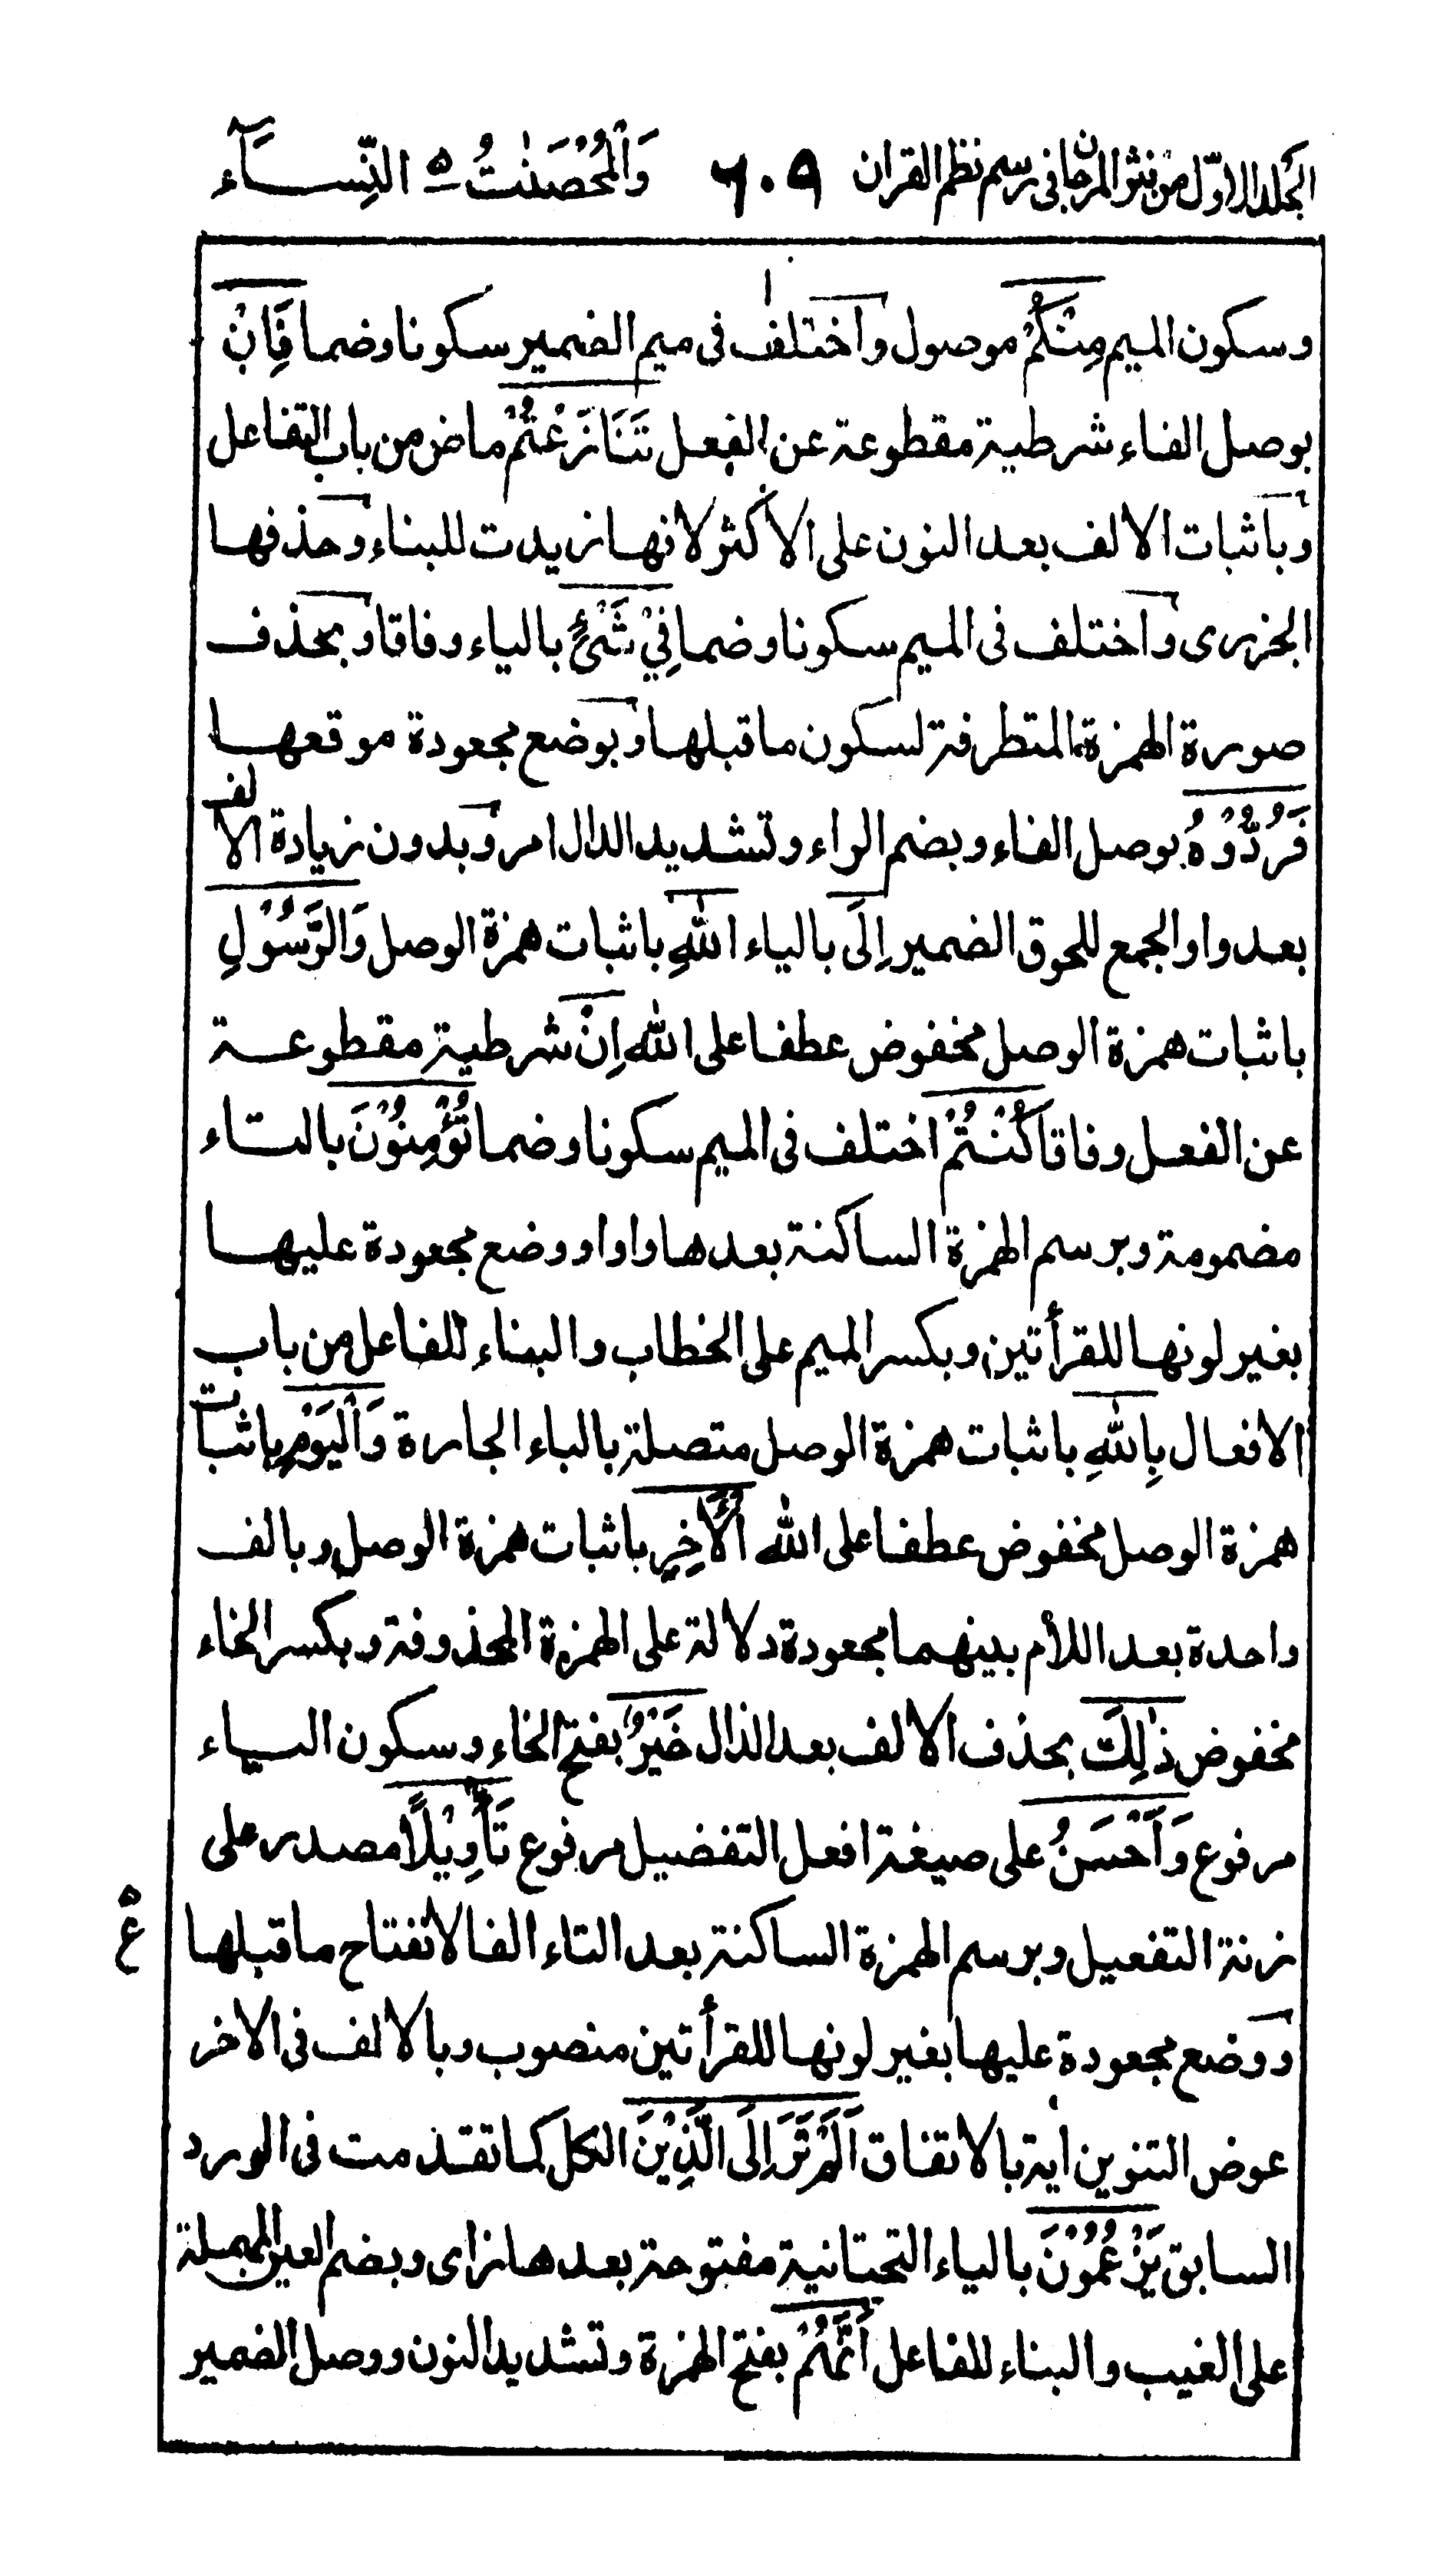 المجلد الاول من نثر المرجان فى رسم نظم القران ٦٠٩ وَالْمُحْصَنٰتُ ٥ النِّسَآء
وسكون الميم مِنْكُمْ موصول واختلف فى ميم الضمير سكونا وضما فَاِنْ
بوصل الفاء شرطية مقطوعة عن الفعل تَنَازَعْتُمْ ماض من باب التفاعل
وباثبات الالف بعد النون على الاكثر لانها زيدت للبناء وحذفها
الجزرى واختلف فى الميم سكونا وضما فِيْ شَيْءٍ بالياء وفاقا وبحذف
صورة الهمزة المتطرفة لسكون ما قبلها وبوضع مجعودة موقعها
فَرُدُّوْهُ بوصل الفاء وبضم الراء وتشديد الدال امر وبدون زيادة الالف
بعد واو الجمع للحوق الضمير اِلَى بالياء اللّٰهِ باثبات همزة الوصل وَالرَّسُوْلِ
باثبات همزة الوصل مخفوض عطفا على اللّٰه اِنْ شرطية مقطوعة
عن الفعل وفاقا كُنْتُمْ اختلف فى الميم سكونا وضما تُؤْمِنُوْنَ بالتاء
مضمومة وبرسم الهمزة الساكنة بعدها واوا ووضع مجعودة عليها
بغير لونها للقرأتين وبكسر الميم على الخطاب والبناء للفاعل من باب
الافعال بِاللّٰهِ باثبات همزة الوصل متصلة بالباء الجارة وَالْيَوْمِ باثبات
همزة الوصل مخفوض عطفا على اللّٰه الْاٰخِرِ باثبات همزة الوصل وبالف
واحدة بعد اللام بينهما مجعودة دلالة على الهمزة المحذوفة وبكسر الخاء
مخفوض ذٰلِكَ بحذف الالف بعد الذال خَيْرٌ بفتح الخاء وسكون الياء
مرفوع وَاَحْسَنُ على صيغة افعل التفضيل مرفوع تَأْوِيْلًا مصدر على
زنة التفعيل وبرسم الهمزة الساكنة بعد التاء الفا لانفتاح ما قبلها
ع ٥
ووضع مجعودة عليها بغير لونها للقرأتين منصوب وبالالف فى الاخر
عوض التنوين اية بالاتفاق اَلَمْ تَرَ اِلَى الَّذِيْنَ الكل كما تقدمت فى الورد
السابق يَزْعُمُوْنَ بالياء التحتانية مفتوحة بعدها زاى وبضم العين المهملة
على الغيب والبناء للفاعل اَنَّهُمْ بفتح الهمزة وتشديد النون ووصل الضمير